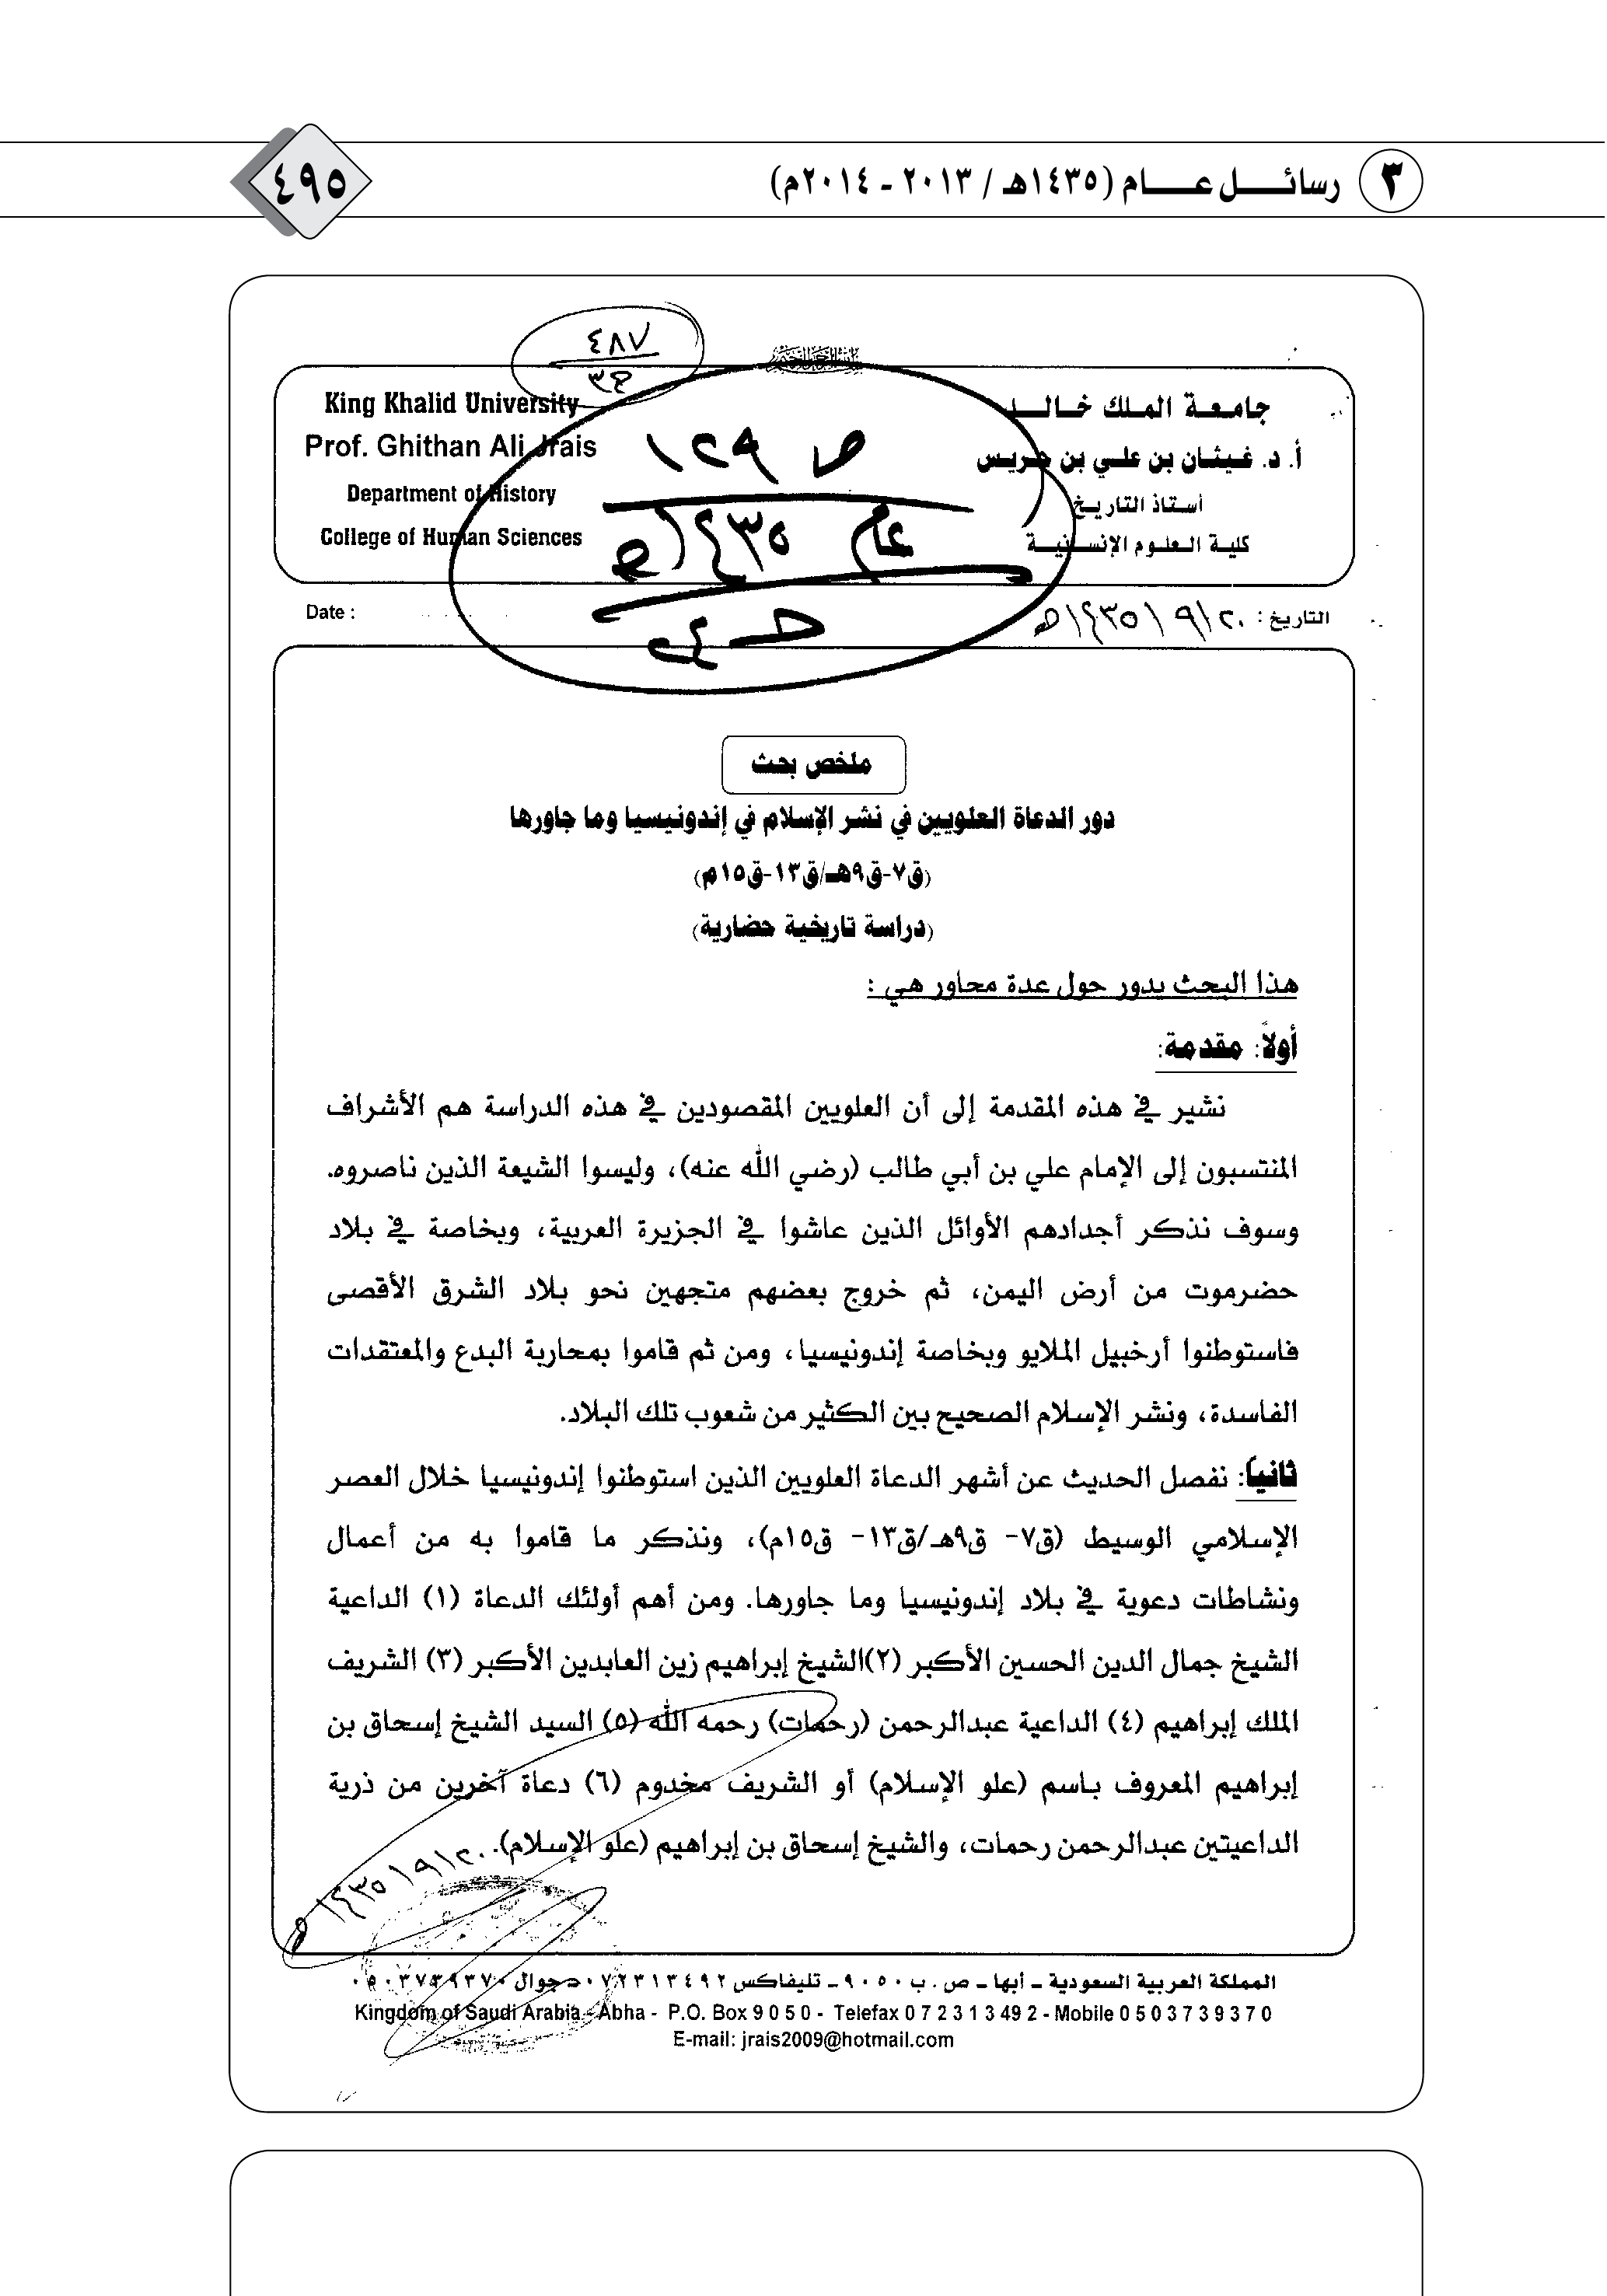 ٣ رسائـــــل عــــــام (١٤٣٥هـ / ٢٠١٣ ـ ٢٠١٤م)
٤٩٥
٤٨٧
جامـعـة الـملـك خـالـــد
أ. د. غـيـثـان بن عـلـي بن جـريـس
أسـتـاذ التاريـخ
كليـة الـعـلـوم الإنـسـانـيـة
King Khalid University
Prof. Ghithan Ali Jrais
Department of History
College of Human Sciences
ص ١٢٩
عام ١٤٣٥هـ
التاريخ : ٢٠ / ٩ / ١٤٣٥هـ
Date :
ملخص بحث
دور الدعاة العلويين في نشر الإسلام في إندونيسيا وما جاورها
(ق٧-ق٩هـ/ق١٣-ق١٥م)
(دراسة تاريخية حضارية)
هذا البحث يدور حول عدة محاور هي :
أولاً: مقدمة:
نشير في هذه المقدمة إلى أن العلويين المقصودين في هذه الدراسة هم الأشراف
المنتسبون إلى الإمام علي بن أبي طالب (رضي الله عنه)، وليسوا الشيعة الذين ناصروه.
وسوف نذكر أجدادهم الأوائل الذين عاشوا في الجزيرة العربية، وبخاصة في بلاد
حضرموت من أرض اليمن، ثم خروج بعضهم متجهين نحو بلاد الشرق الأقصى
فاستوطنوا أرخبيل الملايو وبخاصة إندونيسيا، ومن ثم قاموا بمحاربة البدع والمعتقدات
الفاسدة، ونشر الإسلام الصحيح بين الكثير من شعوب تلك البلاد.
ثانياً: نفصل الحديث عن أشهر الدعاة العلويين الذين استوطنوا إندونيسيا خلال العصر
الإسلامي الوسيط (ق٧- ق٩هـ/ق١٣- ق١٥م)، ونذكر ما قاموا به من أعمال
ونشاطات دعوية في بلاد إندونيسيا وما جاورها. ومن أهم أولئك الدعاة (١) الداعية
الشيخ جمال الدين الحسين الأكبر (٢)الشيخ إبراهيم زين العابدين الأكبر (٣) الشريف
الملك إبراهيم (٤) الداعية عبدالرحمن (رحمات) رحمه الله (٥) السيد الشيخ إسحاق بن
إبراهيم المعروف باسم (علو الإسلام) أو الشريف مخدوم (٦) دعاة آخرين من ذرية
الداعيتين عبدالرحمن رحمات، والشيخ إسحاق بن إبراهيم (علو الإسلام).
٢٠ / ٩ / ١٤٣٥هـ
المملكة العربية السعودية ـ أبها ـ ص . ب ٩٠٥٠ ـ تليفاكس ٠٧٢٣١٣٤٩٢ - جوال ٠٥٠٣٧٣٩٣٧٠
Kingdom of Saudi Arabia - Abha - P.O. Box 9 0 5 0 - Telefax 0 7 2 3 1 3 49 2 - Mobile 0 5 0 3 7 3 9 3 7 0
E-mail: jrais2009@hotmail.com